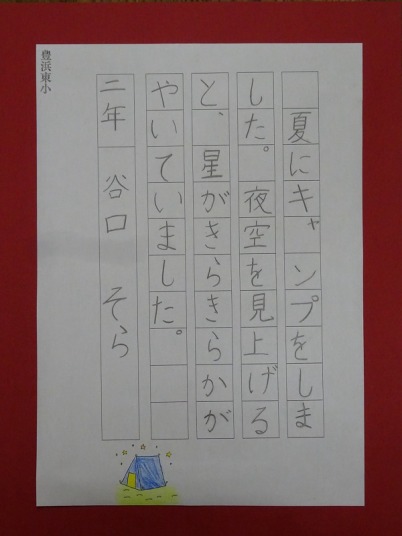 夏にキャンプをしま
した。夜空を見上げる
と、星がきらきらかが
やいていました。
二年 谷口 そら
豊浜東小